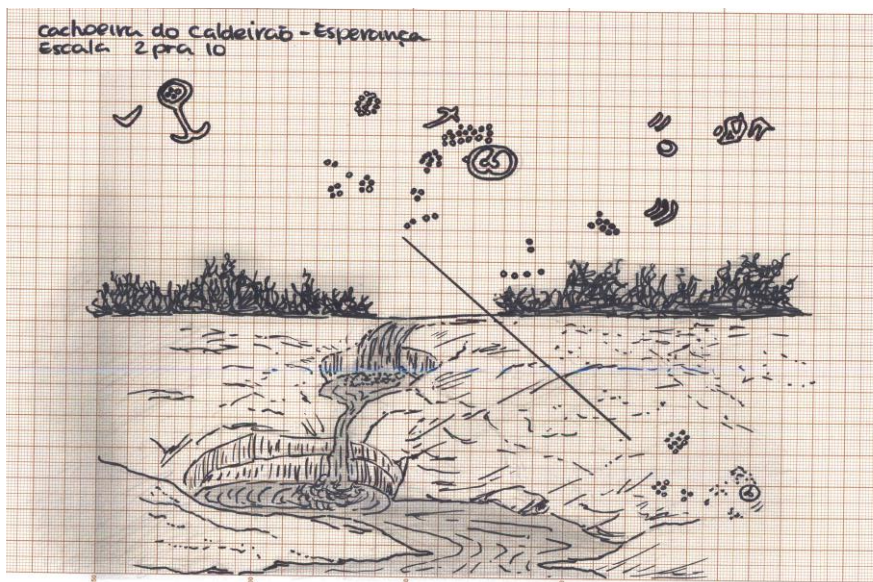 cachoeira do caldeirão - Esperança
Escala 2 pra 10